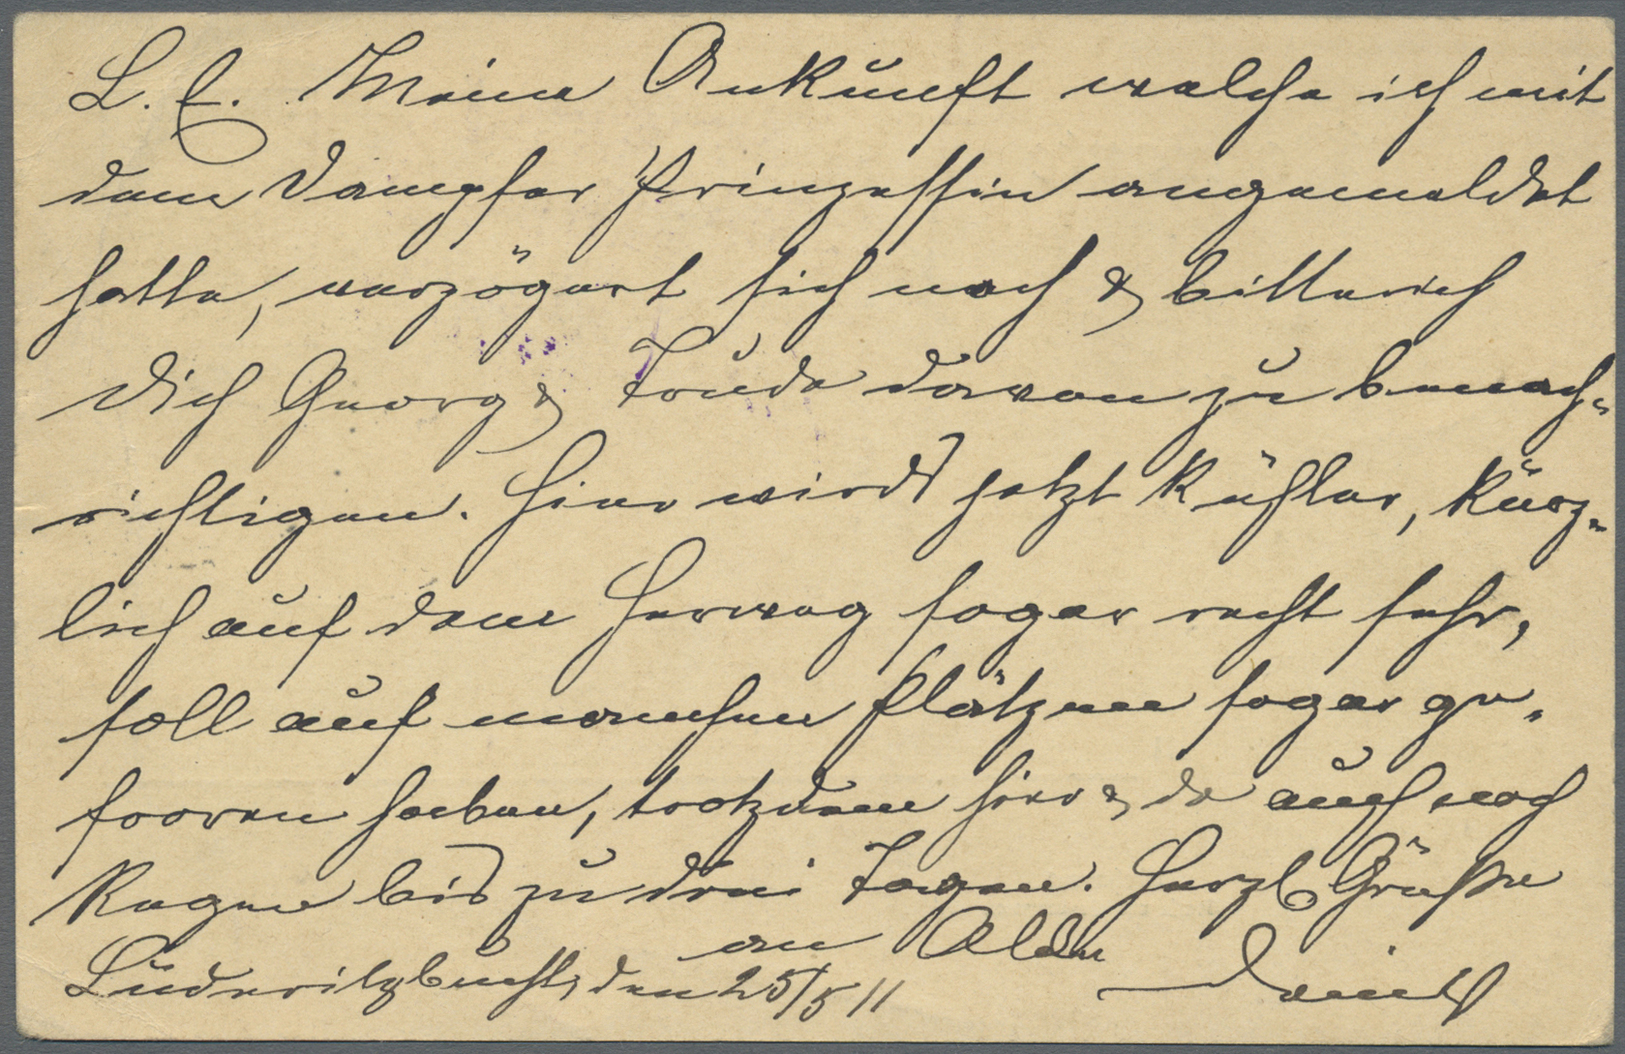 L. E. Meine Ankunft welche ich mit
dem Dampfer Prinzessin angemeldet
hatte, verzögert sich noch & bitte ich
Dich Georg & Trude davon zu benach-
richtigen. Hier wirds jetzt kühler, kürz-
lich auf dem Herweg sogar recht sehr,
soll auf manchen Plätzen sogar ge-
froren haben, trotzdem hier & da auch noch
Regen bis zu drei Tagen. Herzl Grüße
an Alle
Lüderitzbucht, den 25/5 11